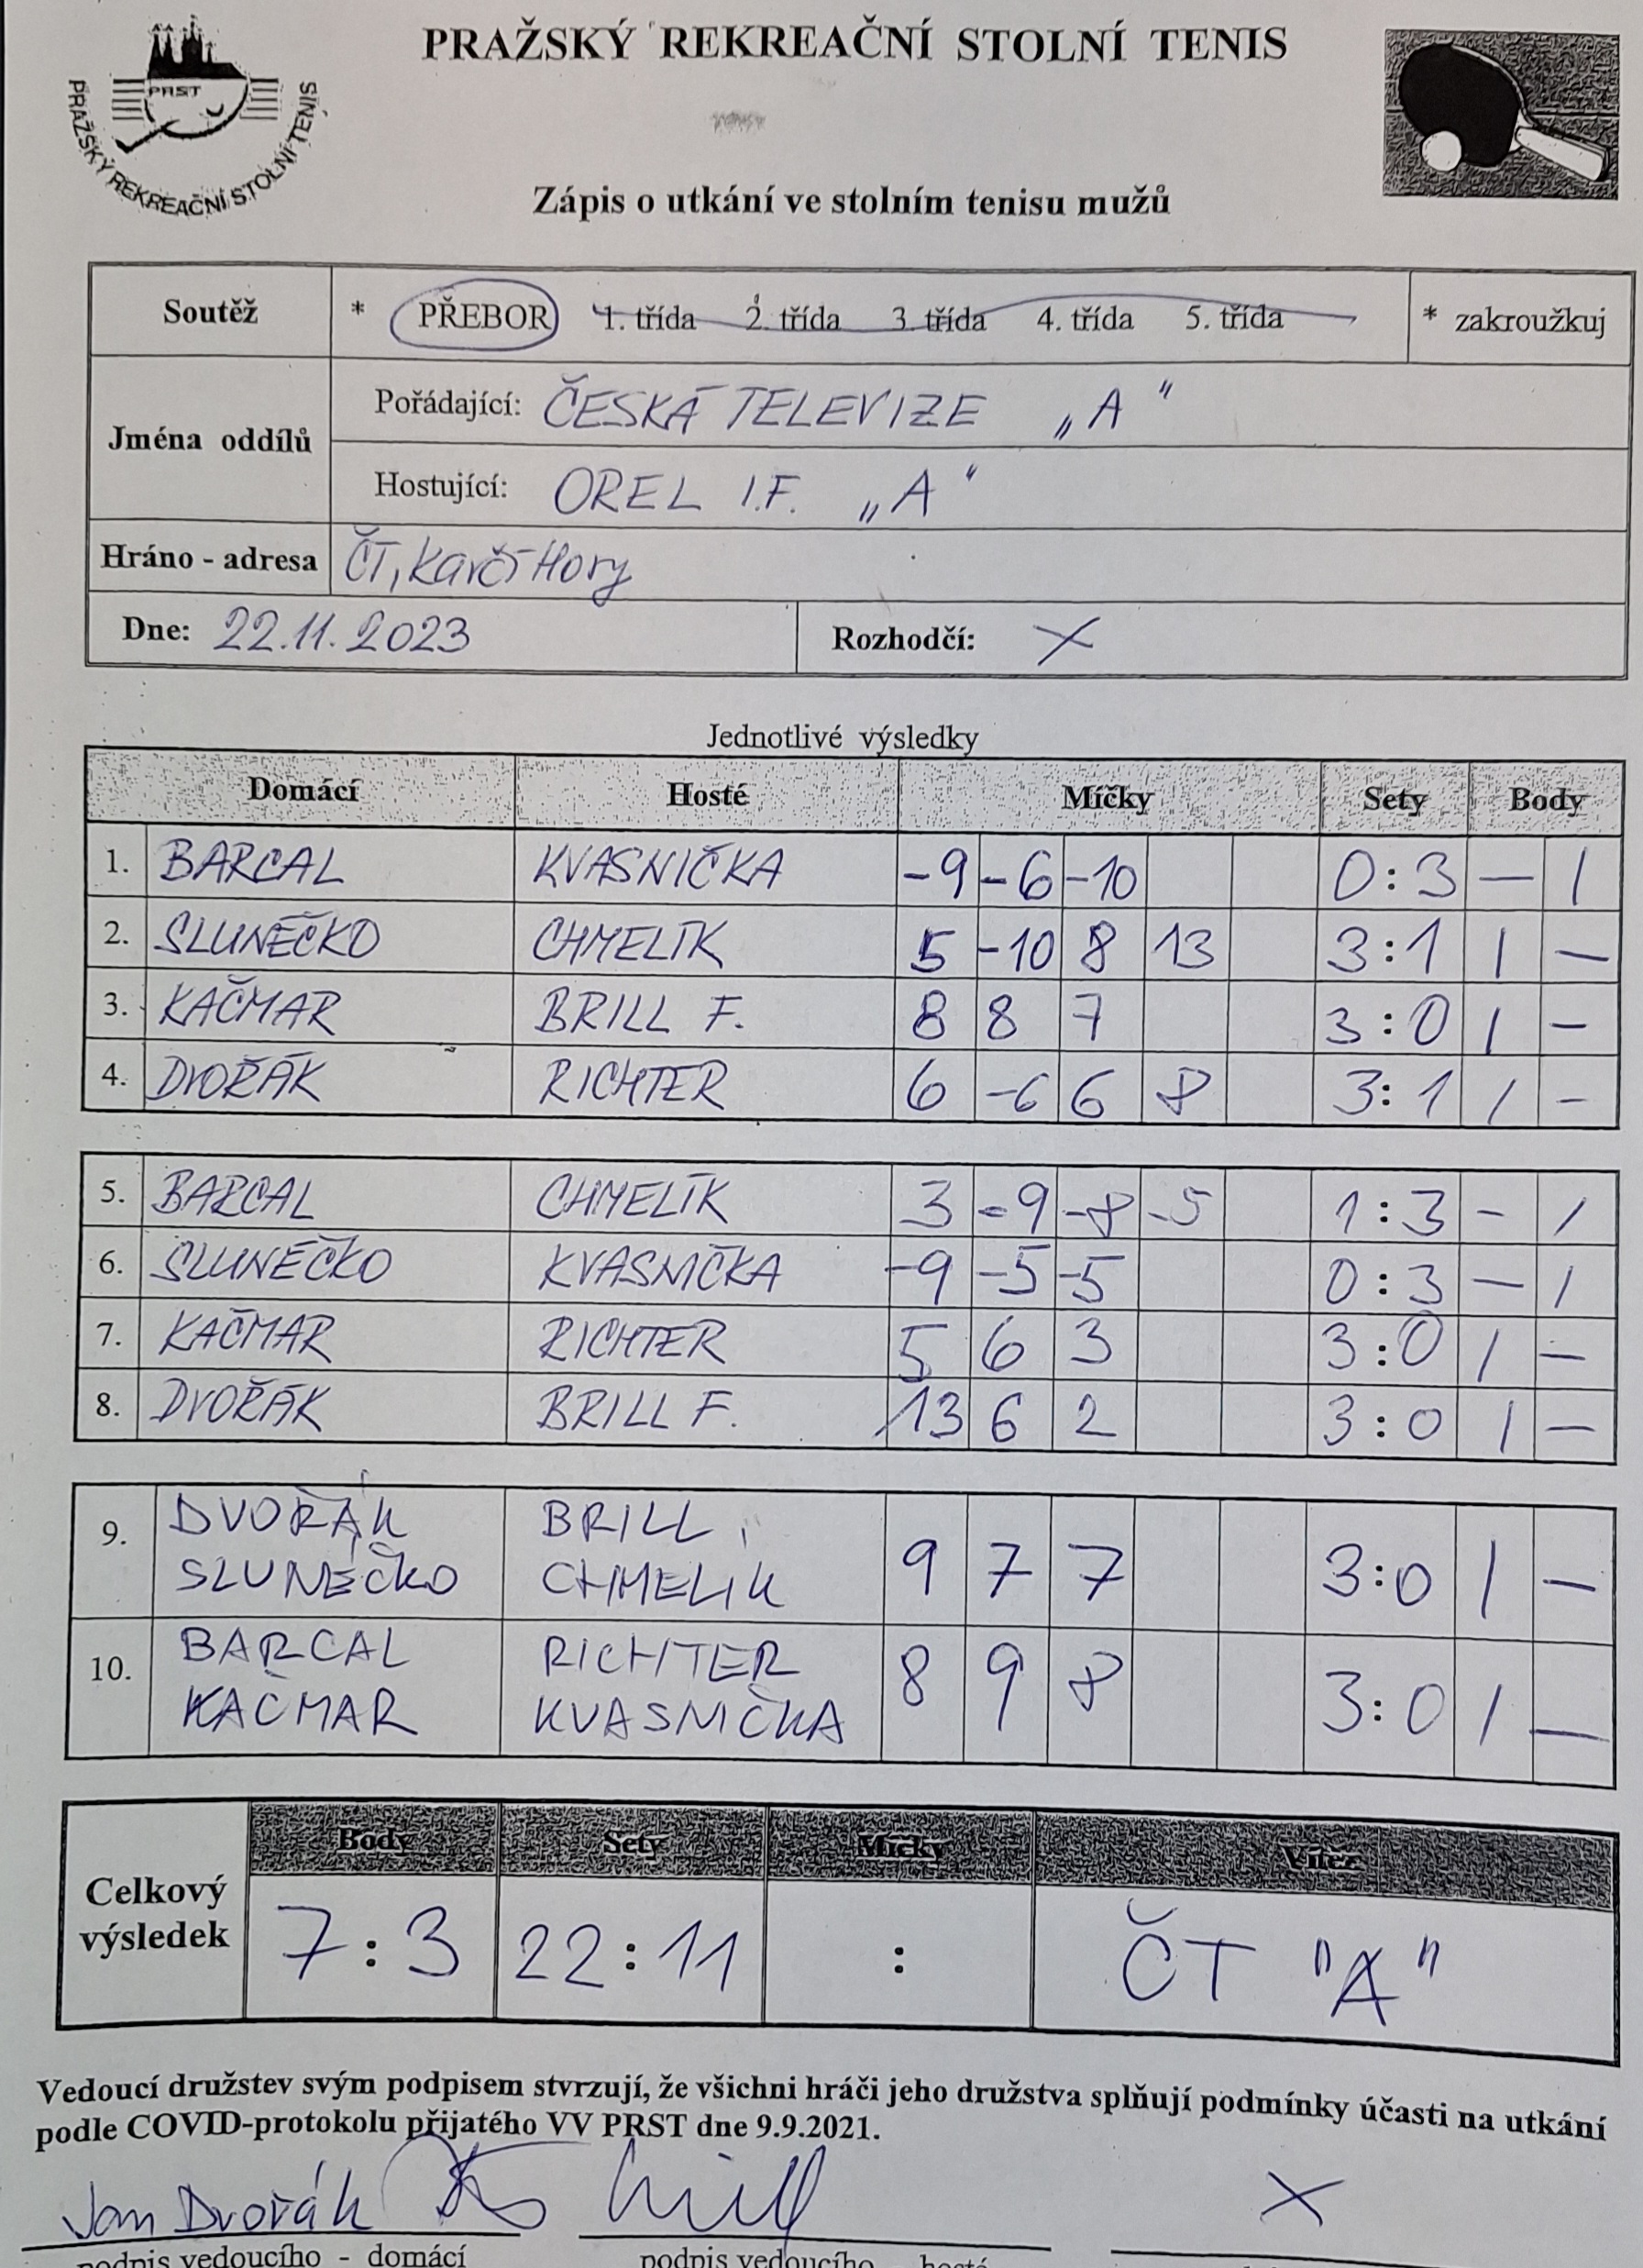 PRAŽSKÝ REKREAČNÍ STOLNÍ TENIS
PRST
PRAŽSKÝ REKREAČNÍ STOLNÍ TENIS
Zápis o utkání ve stolním tenisu mužů
Soutěž * PŘEBOR 1. třída 2. třída 3. třída 4. třída 5. třída * zakroužkuj
Jména oddílů
Pořádající: ČESKÁ TELEVIZE „A"
Hostující: OREL I.F. „A"
Hráno - adresa ČT, Kavčí Hory
Dne: 22.11.2023 Rozhodčí: X
Jednotlivé výsledky
Domácí Hosté Míčky Sety Body
1. BARCAL KVASNIČKA -9 -6 -10 0:3 — 1
2. SLUNÉČKO CHMELÍK 5 -10 8 13 3:1 1 —
3. KAČMAR BRILL F. 8 8 7 3:0 1 —
4. DVOŘÁK RICHTER 6 -6 6 8 3:1 1 -
5. BARCAL CHMELÍK 3 -9 -8 -5 1:3 - 1
6. SLUNÉČKO KVASNIČKA -9 -5 -5 0:3 — 1
7. KAČMAR RICHTER 5 6 3 3:0 1 —
8. DVOŘÁK BRILL F. 13 6 2 3:0 1 —
9. DVOŘÁK BRILL 9 7 7 3:0 1 —
SLUNÉČKO CHMELIK
10. BARCAL RICHTER 8 9 8 3:0 1 —
KAČMAR KVASNIČKA
Body Sety Míčky Vítěz
Celkový výsledek 7:3 22:11 : ČT "A"
Vedoucí družstev svým podpisem stvrzují, že všichni hráči jeho družstva splňují podmínky účasti na utkání
podle COVID-protokolu přijatého VV PRST dne 9.9.2021.
Jan Dvořák X
podpis vedoucího - domácí podpis vedoucího - hosté